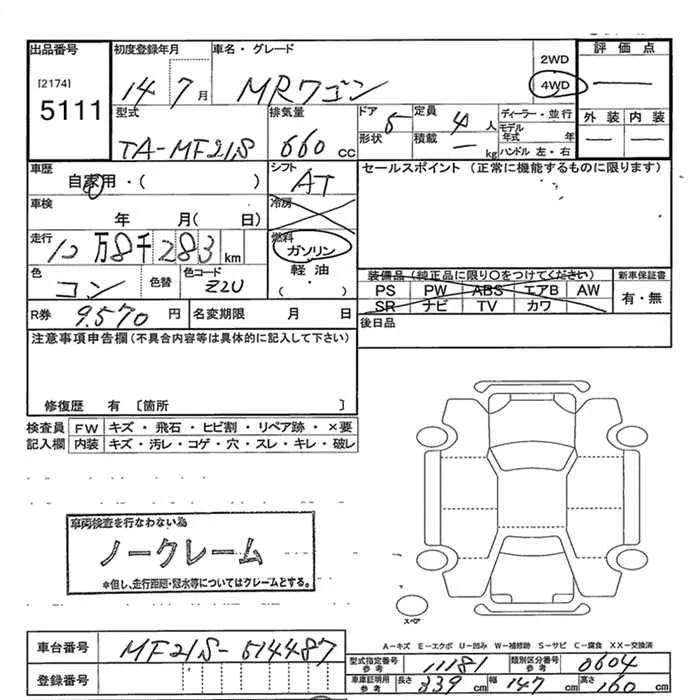 出品番号 初度登録年月 車名・グレード 2WD 評価点
[2174] 14年7月 MRワゴン 4WD —
5111 外装 内装
型式 排気量 ドア 5 定員 4人 ディーラー・並行
TA-MF21S 660cc 形状 積載 —kg モデル年式 年 — —
ハンドル 左・右
車歴 シフト セールスポイント (正常に機能するものに限ります)
自家用・( ) AT
車検 冷房
年 月( 日)
走行 燃料
10万8千283km ガソリン
色 色替 色コード 軽油 装備品 (純正品に限り○をつけてください) 新車保証書
コン Z2U ( ・ ) PS PW ABS エアB AW 有・無
SR ナビ TV カワ
R券 9,570円 名変期限 月 日 後日品
注意事項申告欄(不具合内容等は具体的に記入して下さい)
修復歴 有 〔箇所 〕
検査員 FW キズ・飛石・ヒビ割・リペア跡・×要
記入欄 内装 キズ・汚レ・コゲ・穴・スレ・キレ・破レ
車両検査を行なわない為
ノークレーム
*但し、走行距離・冠水等についてはクレームとする。
スペア
A-キズ E-エクボ U-凹み W-補修跡 S-サビ C-腐食 XX-交換済
車台番号 MF21S-614487
型式指定番号 参考 11181 類別区分番号 参考 0604
登録番号 車庫証明用 参考 長さ 339cm 幅 147cm 高さ 160cm